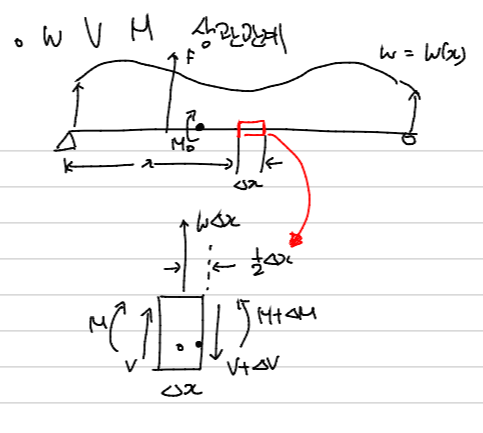 w V M 상관관계
F
w = w(x)
M₀
x
Δx
wΔx
½Δx
M
M+ΔM
V
V+ΔV
Δx